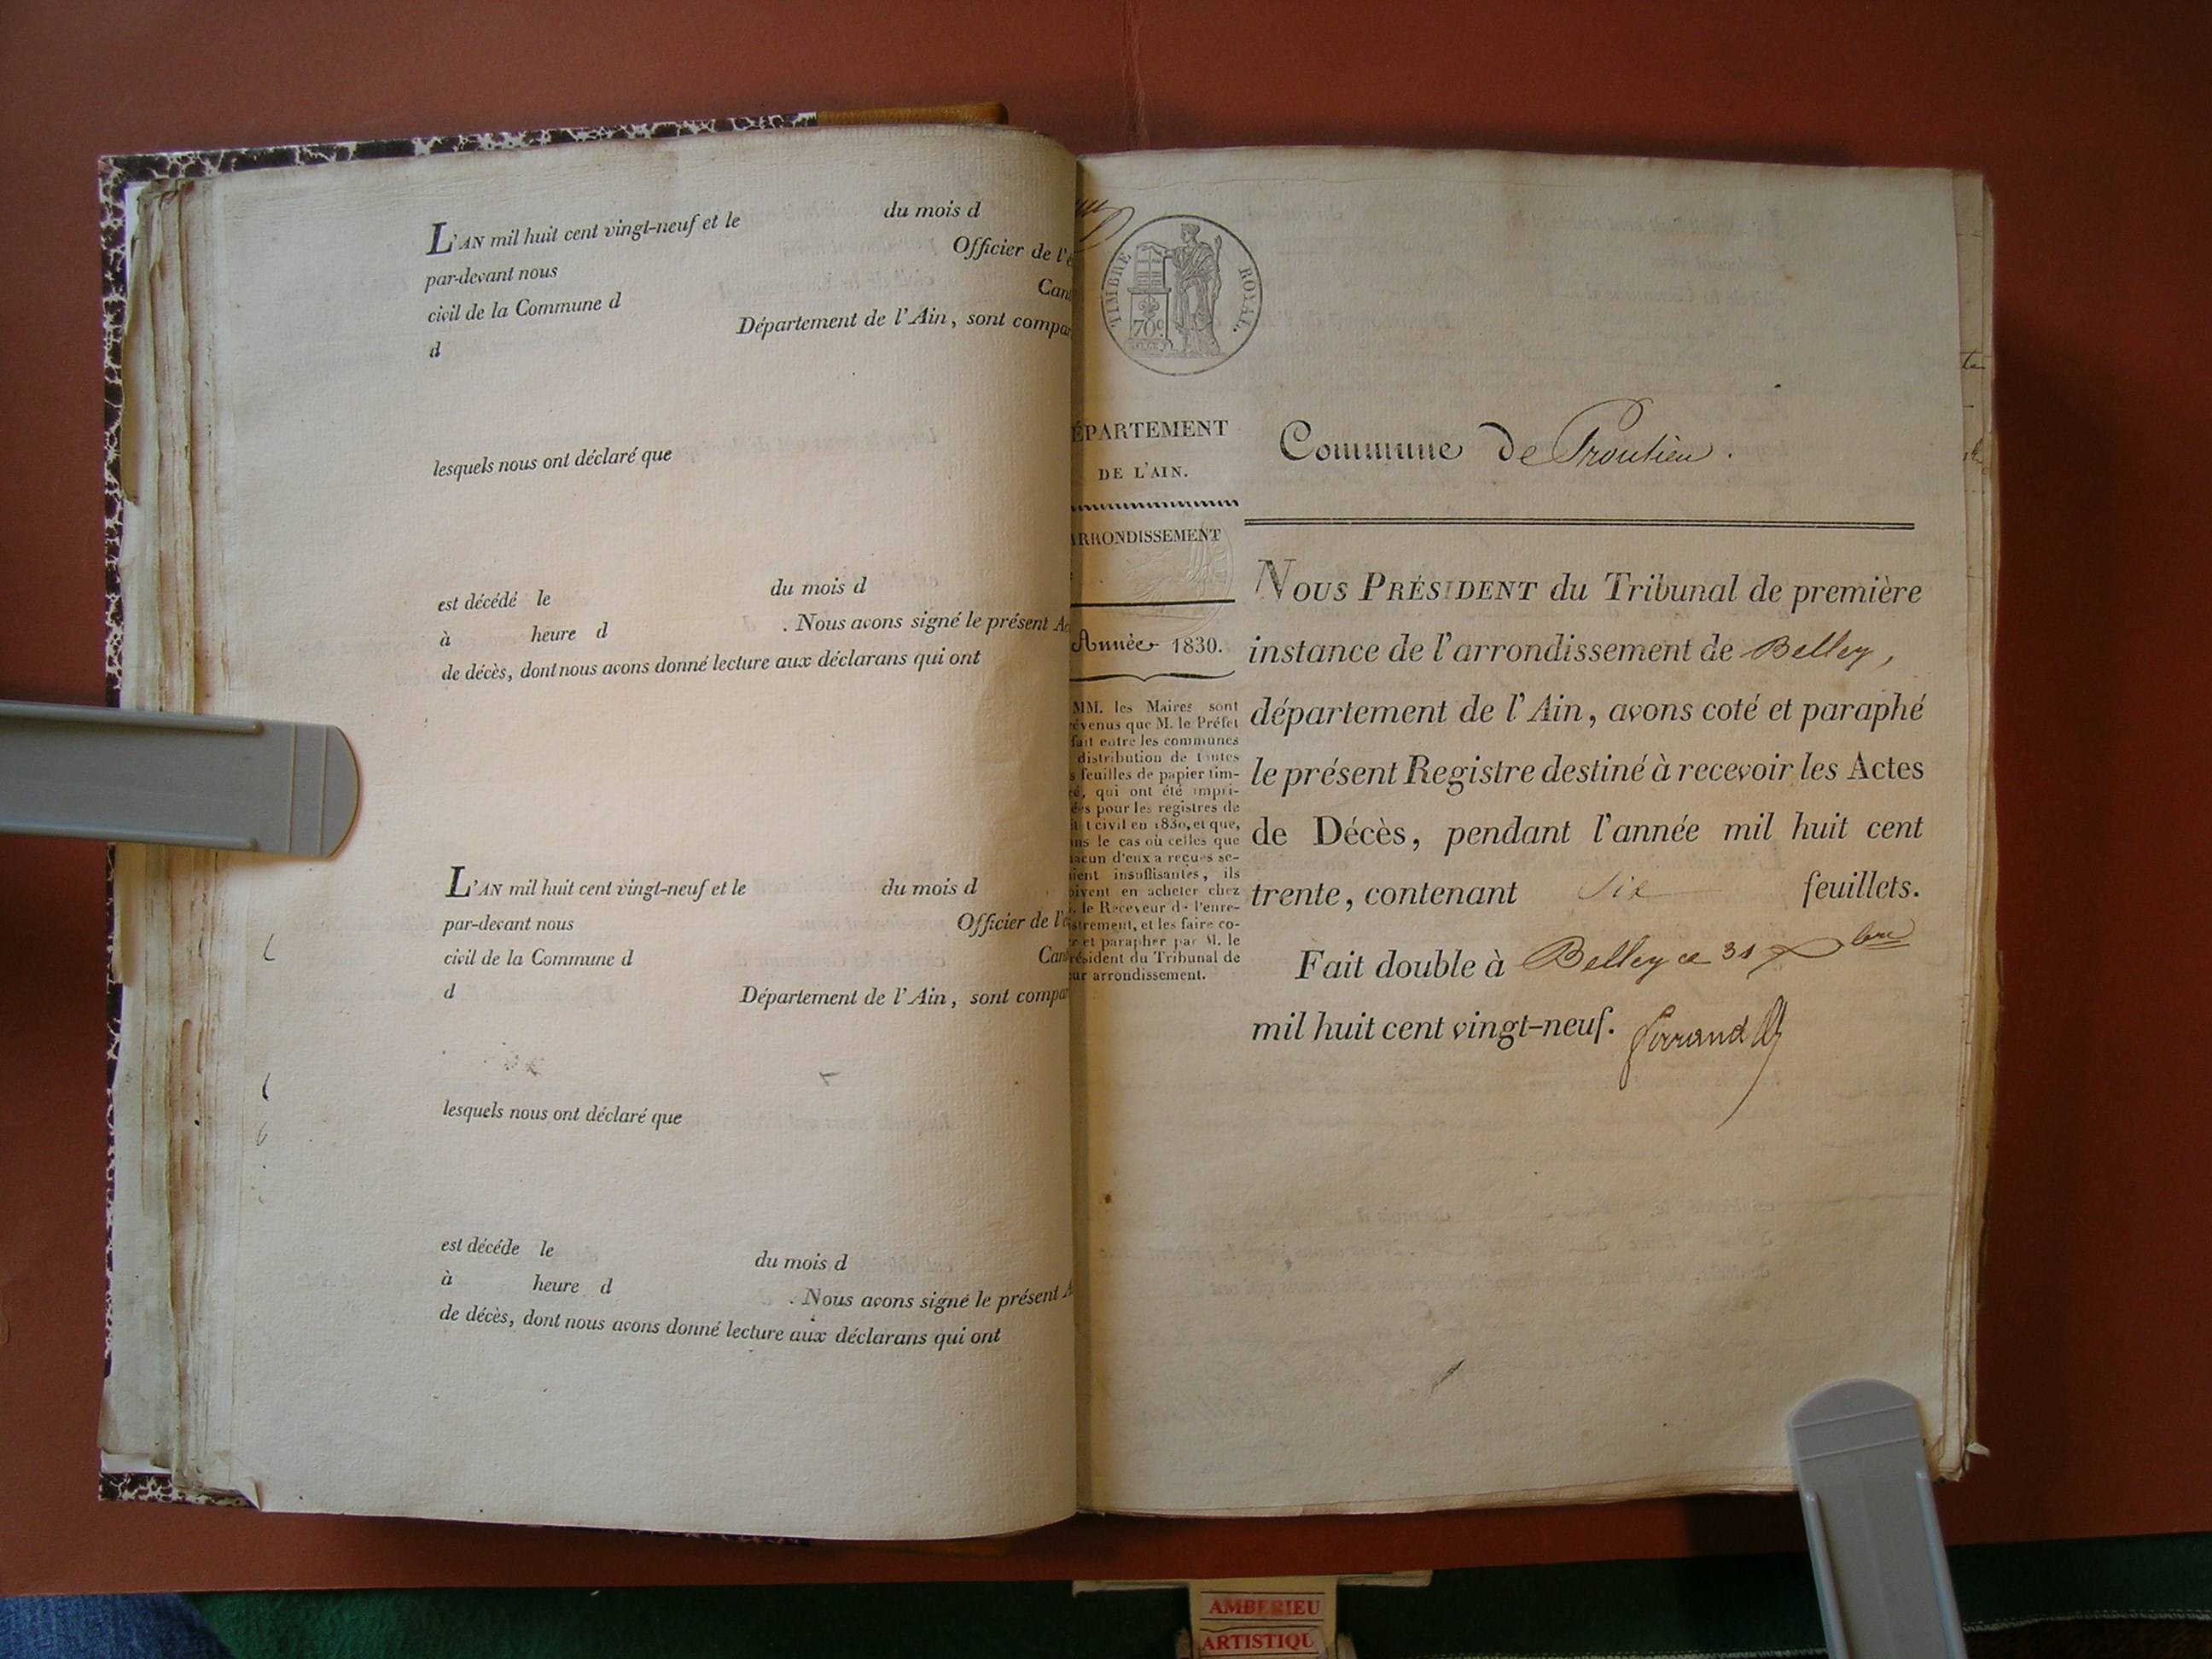 L'AN mil huit cent vingt-neuf et le du mois d
par-devant nous Officier de l'é
civil de la Commune d Can
d Département de l'Ain, sont compar
lesquels nous ont déclaré que
est décédé le du mois d
à heure d . Nous avons signé le présent Ac
de décès, dont nous avons donné lecture aux déclarans qui ont
L'AN mil huit cent vingt-neuf et le du mois d
par-devant nous Officier de l'é
civil de la Commune d Can
d Département de l'Ain, sont compar
lesquels nous ont déclaré que
est décéde le du mois d
à heure d . Nous avons signé le présent A
de décès, dont nous avons donné lecture aux déclarans qui ont
TIMBRE ROYAL.
70c
ÉPARTEMENT
DE L'AIN.
ARRONDISSEMENT
Année 1830.
MM. les Maires sont
révenus que M. le Préfet
fait entre les communes
distribution de toutes
s feuilles de papier tim-
ré, qui ont été impri-
ées pour les registres de
t civil en 1830, et que,
ns le cas où celles que
acun d'eux a reçues se-
ient insuffisantes, ils
oivent en acheter chez
. le Receveur de l'enre-
strement, et les faire co-
r et parapher par M. le
résident du Tribunal de
ur arrondissement.
Commune de Proulieu.
NOUS PRÉSIDENT du Tribunal de première
instance de l'arrondissement de Belley,
département de l'Ain, avons coté et paraphé
le présent Registre destiné à recevoir les Actes
de Décès, pendant l'année mil huit cent
trente, contenant Six feuillets.
Fait double à Belley ce 31 Xbre
mil huit cent vingt-neuf.
AMBERIEU
ARTISTIQU